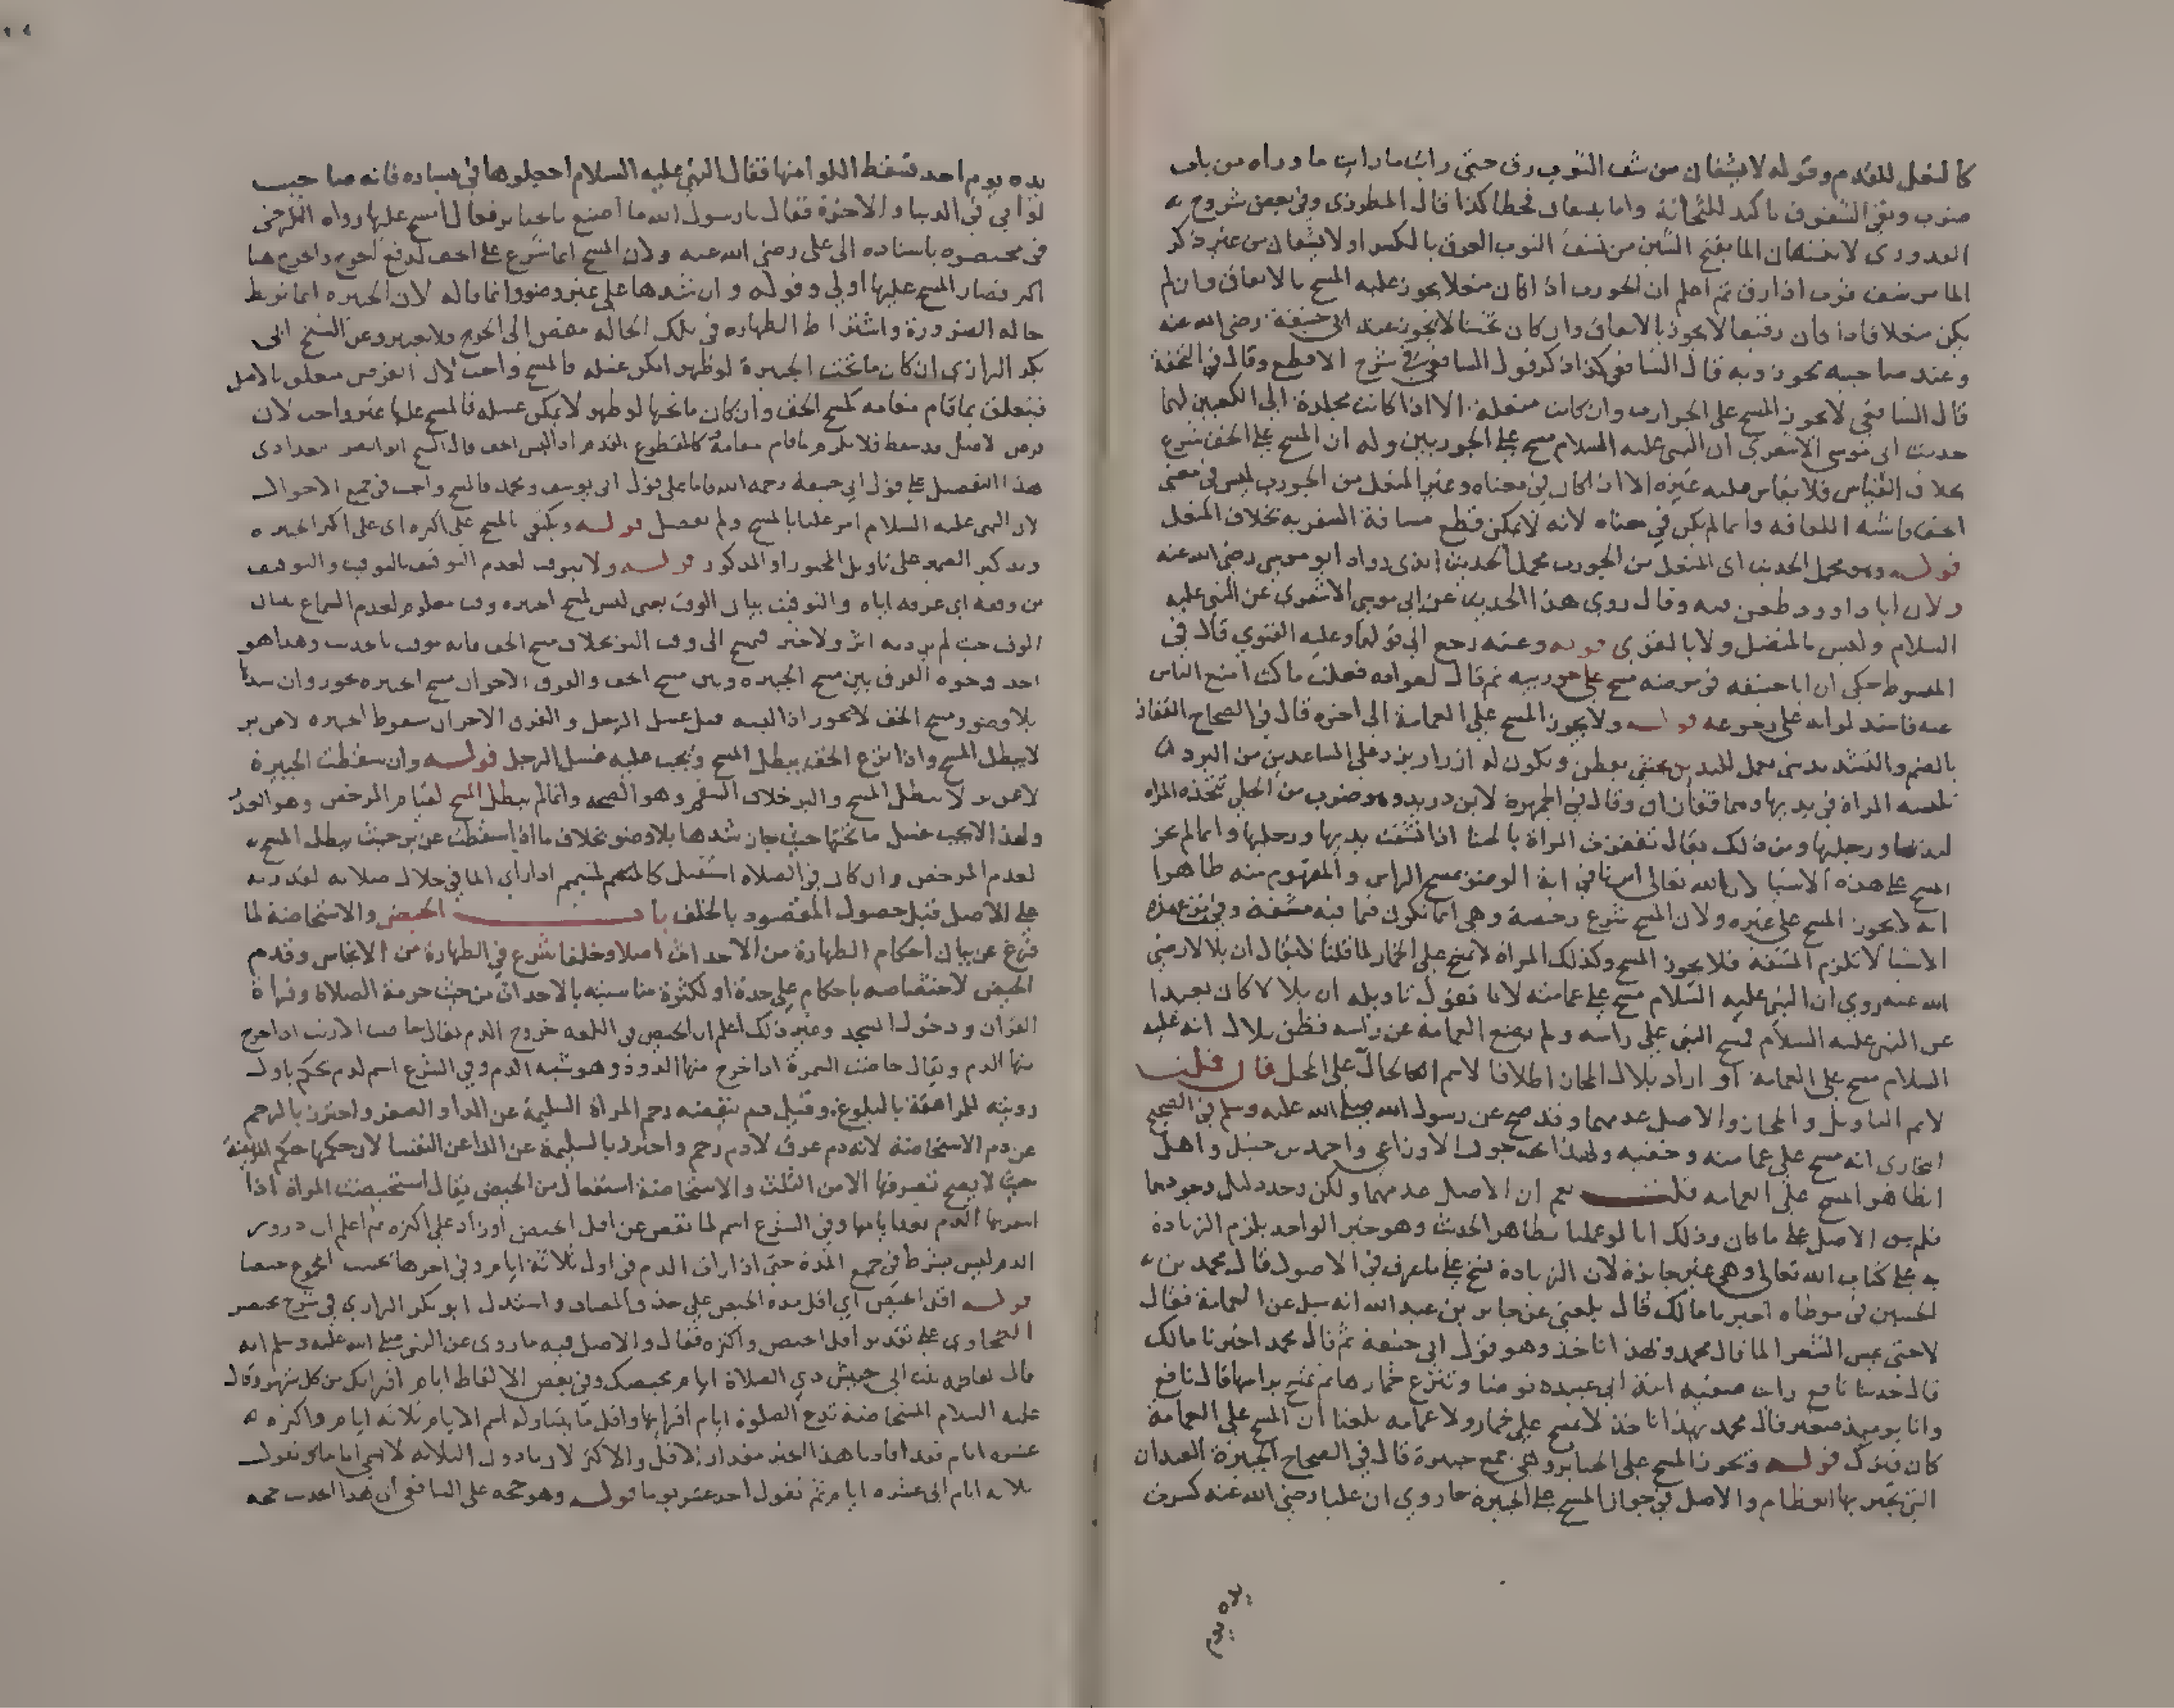 كالنعل للقدم وقوله لا يشفان من شف الثوب رق حتى رايت ما وراه من باب
ضرب ونفي الشفوف تاكيد للثخانة واما ينشفان فخطا كذا قال المطرزي وفي بعض شروح
القدوري لا ينشفان الما بفتح الشين من نشف الثوب العرق بالكسر او لا يشفان من غير ذكر
الما من شف ثوب اذا رق ثم اعلم ان الجورب اذا كان منعلا يجوز عليه المسح بالاتفاق وان لم
يكن منعلا فاذا كان رقيقا لا يجوز بالاتفاق وان كان ثخينا لا يجوز عند ابي حنيفة رضي الله عنه
وعند صاحبيه يجوز وبه قال الشافعي كذا ذكر قول الشافعي في شرح الاقطع وقال في التحفة
قال الشافعي لا يجوز المسح على الجوارب وان كانت منعلة الا اذا كانت مجلدة الى الكعبين لهما
حديث ابي موسى الاشعري ان النبي عليه السلام مسح على الجوربين وله ان المسح على الخف شرع
بخلاف القياس فلا يقاس عليه غيره الا اذا كان في معناه وغير المنعل من الجورب ليس في معنى
الخف فاشبه اللفافة وانما لم يكن في معناه لانه لا يمكن قطع مسافة السفر به بخلاف المنعل
قوله وهو محمل الحديث اي المنعل من الجورب محمل الحديث الذي رواه ابو موسى رضي الله عنه
ولان ابا داوود طعن فيه وقال روى هذا الحديث عن ابي موسى الاشعري عن النبي عليه
السلام وليس بالمتصل ولا بالقوي قوله وعنه رجع الى قولهما وعليه الفتوي قال في
المبسوط حكي ان ابا حنيفه في مرضه مسح على جوربيه ثم قال لعواده فعلت ما كنت امنع الناس
عنه فاستدلوا به على رجوعه قوله ولا يجوز المسح على العمامة الى اخره قال في الصحاح القفاز
بالضم والتشديد شي يعمل لليدين يحشى بقطن ويكون له ازرار يزر على الساعدين من البرد
تلبسه المراة في يديها وهما قفازان وقال في الجمهرة لابن دريد وهو ضرب من الحلي تتخذه المراه
ليديها ورجليها ومن ذلك يقال تقفزت المراة بالحنا اذا نقشت يديها ورجليها وانما لم يجز
المسح على هذه الاشيا لان الله تعالى امرنا في اية الوضوء بمسح الراس والمفهوم منه ظاهرا
انه لا يجوز المسح على غيره ولان المسح شرع رخصة وهي انما تكون فيما فيه مشقة وفي نزع هذه
الاشيا لا تلزم المشقه فلا يجوز المسح وكذلك المراة لا تمسح على الخمار لما قلنا لا يقال ان بلالا رضي
الله عنه روي ان النبي عليه السلام مسح على عمامته لانا نقول تاويله ان بلالا كان بعيدا
عن النبي عليه السلام فمسح النبي على راسه ولم يضع العمامة عن راسه فظن بلال انه عليه
السلام مسح على العمامة او اراد بلال المجاز اطلاقا لاسم الحال على المحل فان قلت
لم التاويل والمجاز والاصل عدمهما وقد صح عن رسول الله صلى الله عليه وسلم في الصحيح
البخاري انه مسح على عمامته وخفيه ولهذا جوز الاوزاعي واحمد بن حنبل واهل
الظاهر المسح على العمامه قلت نعم ان الاصل عدمهما ولكن وجد دليل وجودهما
فلم يبق الاصل على ما كان وذلك انا لو عملنا بظاهر الحديث وهو خبر الواحد يلزم الزيادة
به على كتاب الله تعالى وهي غير جائزة لان الزيادة نسخ على ما عرف في الاصول قال محمد بن
الحسين في موطاه اخبرنا مالك قال بلغني عن جابر بن عبد الله انه سيل عن العمامة فقال
لا حتى يمس الشعر الما قال محمد وبهذا ناخذ وهو قول ابي حنيفة ثم قال محمد اخبرنا مالك
قال حدثنا نافع رايت صفيه ابنة ابي عبيده توضا وتنزع خمارها ثم تمسح براسها قال نافع
وانا يوميذ صغير قال محمد بهذا ناخذ لا نمسح على خمار ولا عمامه بلغنا ان المسح على العمامة
كان فترك قوله ويجوز المسح على الجباير وهي جمع جبيرة قال في الصحاح الجبيرة العيدان
التي يجبر بها العظام والاصل في جواز المسح على الجبيرة ما روي ان عليا رضي الله عنه كسرت
يده يوم
يده يوم احد فسقط اللوا منها فقال النبي عليه السلام اجعلوها في يساره فانه صاحب
لواي في الدنيا والاخرة فقال يا رسول الله ما اصنع بالجباير فقال امسح عليها رواه الكرخي
في مختصره باسناده الى علي رضي الله عنه ولان المسح انما شرع على الخف لدفع الحرج والحرج هنا
اكثر فصار المسح عليها اولى وقوله وان شدها على غير وضو وانما قاله لان الجبيره انما تربط
حاله الضرورة واشتراط الطهاره في تلك الحاله مفض الى الحرج ولا يجوز وعن الشيخ ابي
بكر الرازي ان كان ما تحت الجبيرة لو ظهر امكن غسله فالمسح واجب لان الفرض متعلق بالاصل
فيتعلق بما قام مقامه كمسح الخف وان كان ما تحتها لو ظهر لا يمكن غسله فالمسح عليها غير واجب لان
فرض الاصل قد سقط فلا يلزم ما قام مقامه كالمقطوع القدم اذا لبس الخف قال الشيخ ابو النصر البغدادي
هذا التفصيل على قول ابي حنيفة رحمه الله فاما على قول ابي يوسف ومحمد فالمسح واجب في جميع الاحوال
لان النبي عليه السلام امر عليا بالمسح ولم يفصل قوله ويكتفي بالمسح على اكثره اي على اكثر الجبيره
وتذكير الضمير على تاويل المجبور او المذكور قوله ولا يتوقت لعدم التوقيف بالتوقيت والتوقيف
من وقفه اي عرفه اياه والتوقيت بيان الوقت يعني ليس لمسح الجبيره وقت معلوم لعدم السماع ببيان
الوقت حيث لم يرد فيه اثر ولا خبر فيمسح الى وقت البرء بخلاف مسح الخف فانه موقت بالحديث وهذا هو
احد وجوه الفرق بين مسح الجبيره وبين مسح الخف والفرق الاخر ان مسح الجبيره يجوز وان شدها
بلا وضو ومسح الخف لا يجوز اذا لبسه قبل غسل الرجل والفرق الاخر ان سقوط الجبيره لا عن برء
لا يبطل المسح واذا نزع الخف يبطل المسح ويجب عليه غسل الرجل قوله وان سقطت الجبيرة
لا عن برء لا يبطل المسح والبرء خلاف السقم وهو الصحه وانما لم يبطل المسح لقيام المرخص وهو العذر
ولهذا لا يجب غسل ما تحتها حيث جاز شدها بلا وضو بخلاف ما اذا سقطت عن برء حيث يبطل المسح
لعدم المرخص وان كان في الصلاة استقبل كالمتيمم اذا راى الما في خلال صلاته لقدرته
على الاصل قبل حصول المقصود بالخلف باب الحيض والاستحاضة لما
فرغ عن بيان احكام الطهارة من الاحداث اصلا وخلفا شرع في الطهارة من الانجاس وقدم
الحيض لاختصاصه باحكام على حدة او لكثرة مناسبته بالاحداث من حيث حرمة الصلاة وقراة
القران ودخول المسجد وغير ذلك اعلم ان الحيض في اللغه خروج الدم يقال حاضت الارنب اذا خرج
منها الدم ويقال حاضت السمرة اذا خرج منها الدودم وهو شبه الدم وفي الشرع اسم لدم يحكم باول
رويته للمراهقة بالبلوغ وقيل دم ينفضه رحم المراة السليمة عن الدا والصغر واحترز بالرحم
عن دم الاستحاضة لانه دم عرق لا دم رحم واحترز بالسليمة عن الدا عن النفسا لان حكمها حكم المريضة
حيث لا يصح تصرفها الا من الثلث والاستحاضة استفعال من الحيض يقال استحيضت المراة اذا
استمر بها الدم بعد ايامها وفي الشرع اسم لما نقص عن اقل الحيض او زاد على اكثره ثم اعلم ان درور
الدم ليس بشرط في جميع المدة حتى اذا رات الدم في اول ثلاثة ايام وفي اخرها يحسب الجموع حيضا
قوله اقل الحيض اي اقل مده الحيض على حذف المضاف واستدل ابو بكر الرازي في شرح مختصر
الطحاوي على تقدير اقل الحيض واكثره فقال والاصل فيه ما روي عن النبي صلى الله عليه وسلم انه
قال لفاطمه بنت ابي حبيش دعي الصلاة ايام محيضك وفي بعض الالفاظ ايام اقرائك من كل شهر وقال
عليه السلام المستحاضة تدع الصلوة ايام اقرايها واقل ما يتناوله اسم الايام ثلاثه ايام واكثره
عشره ايام فقد افادنا هذا الخبر مقدار الاقل والاكثر لان ما دون الثلاثه لا يسمى اياما نقول
ثلاثه ايام الى عشره ايام ثم نقول احد عشر يوما قوله وهو حجه على الشافعي اي هذا الحديث حجه